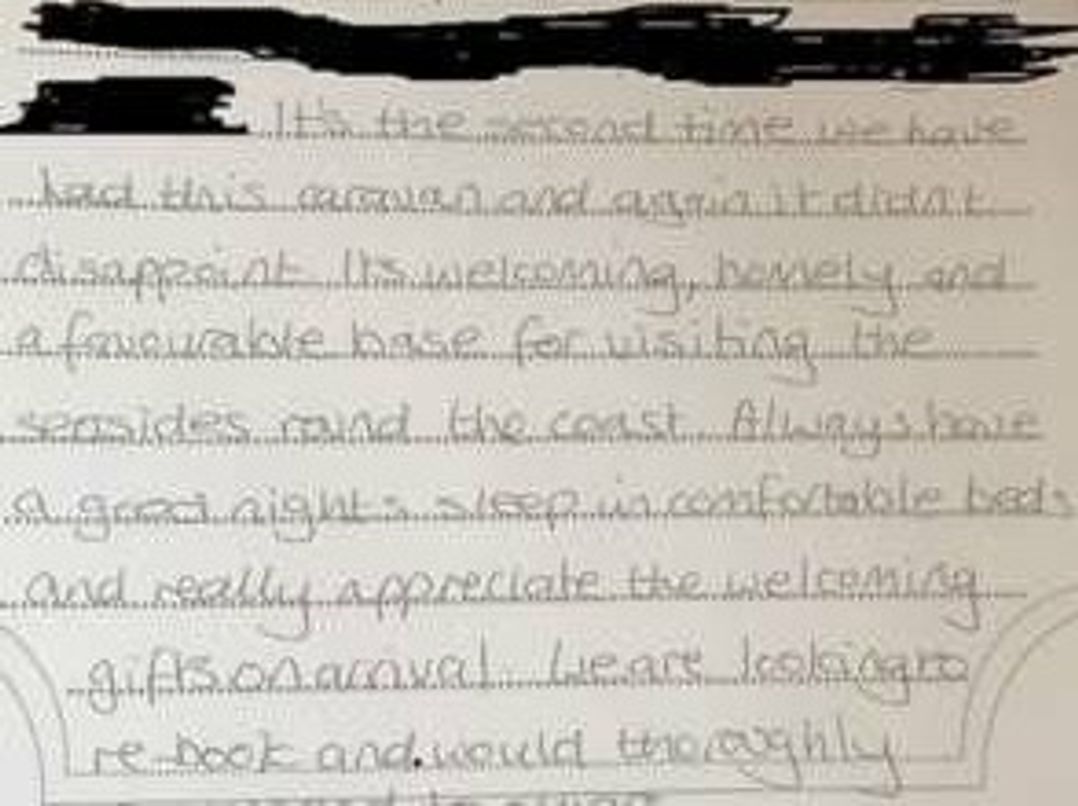 It's the second time we have
had this caravan and again it didn't
disappoint. It's welcoming, homely and
a favourable base for visiting the
seasides round the coast. Always have
a good nights sleep in comfortable beds
and really appreciate the welcoming
gifts on arrival. We are looking to
re-book and would thoroughly